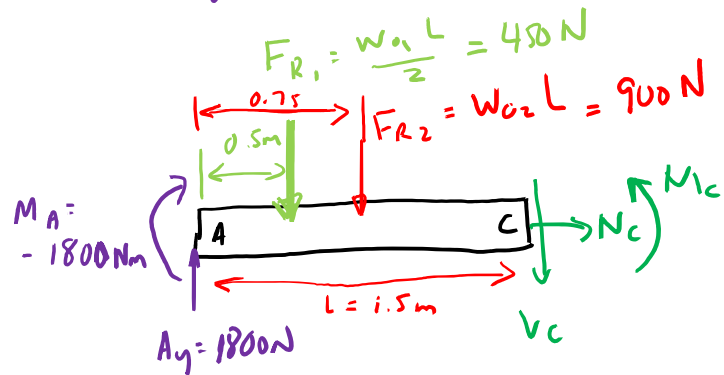 F_R1 = W_01 L / 2 = 450 N
0.75
F_R2 = W_02 L = 900 N
0.5m
M_A =
- 1800Nm
A
C
N_C
M_C
L = 1.5m
V_C
A_y = 1800N